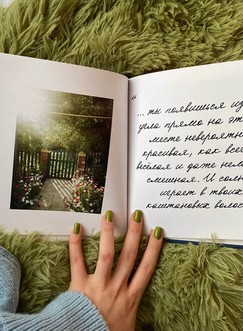 ... ты появишься из
угла прямо на эт
месте невероятн
красивая, как все
весёлая и даже нем
смешная. И солн
играет в твоих
каштановых волос